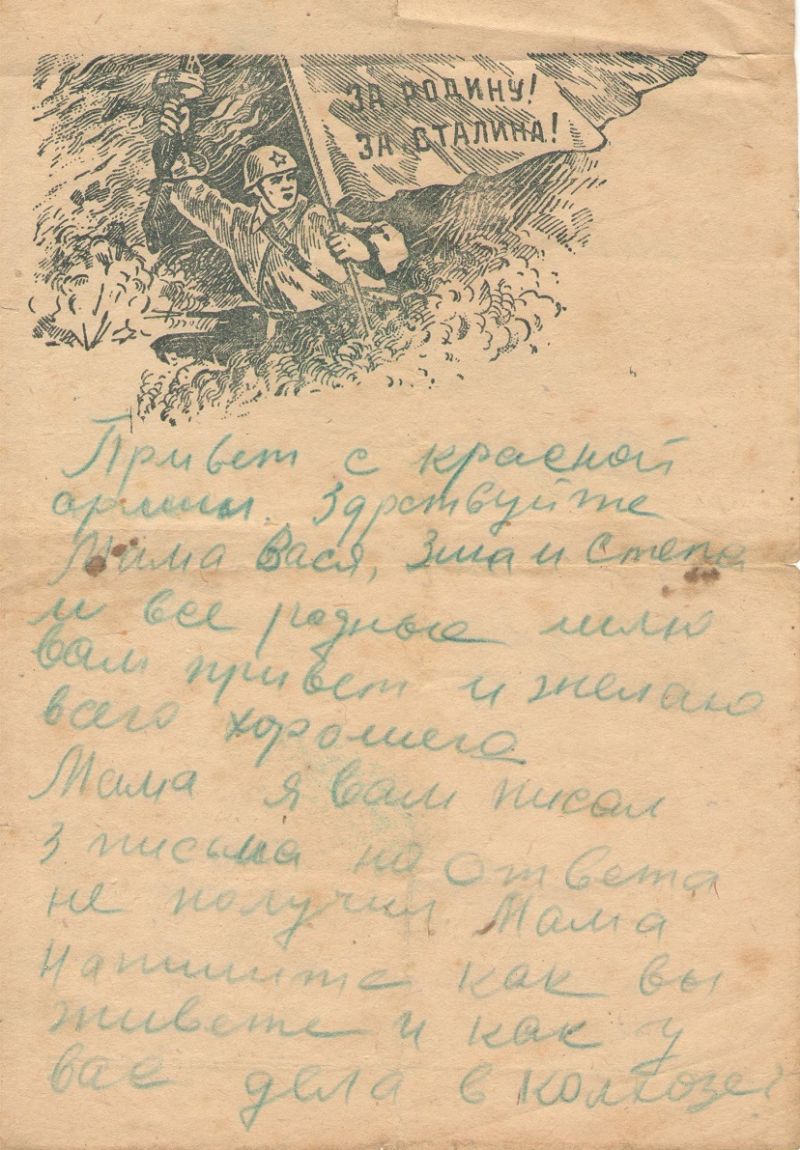 ЗА РОДИНУ!
ЗА СТАЛИНА!
Привет с красной
армии. Здраствуйте
Мама Вася, Зина и Степа
и все родные шлю
вам привет и желаю
всего хорошега
Мама я вам писал
3 письма но ответа
не получил Мама
Напишите как вы
живете и как у
вас дела в колхозе?